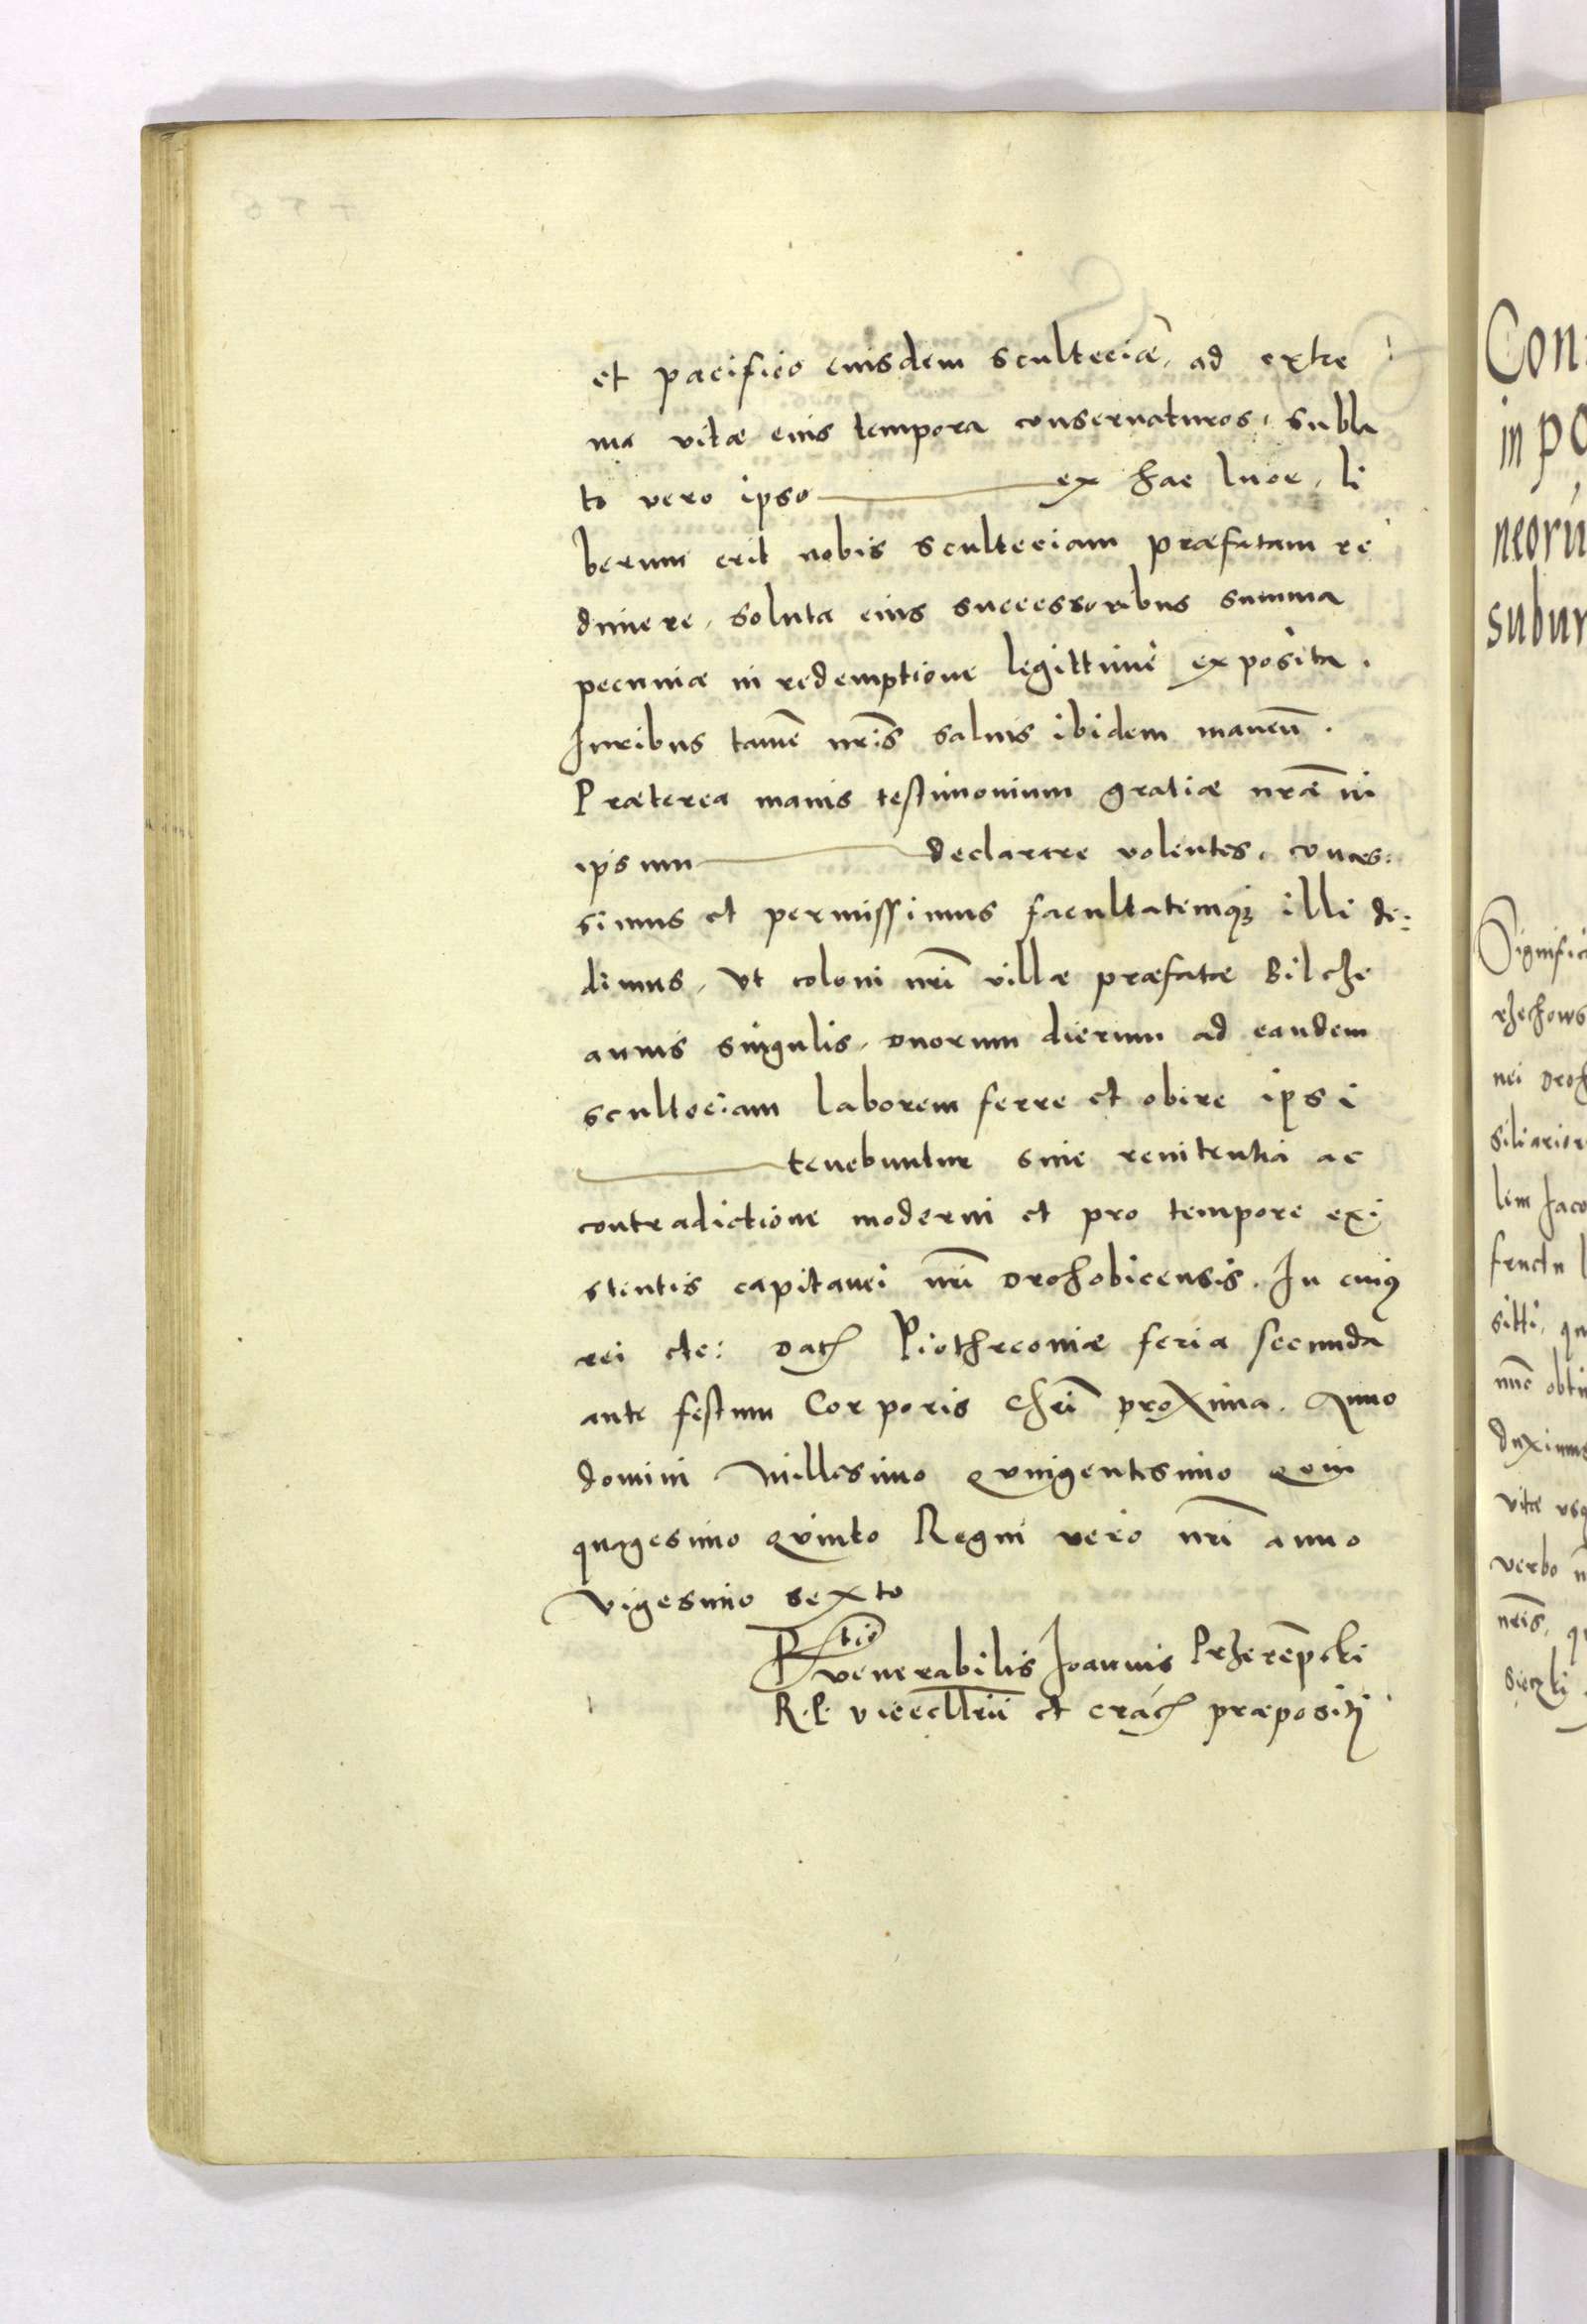 et pacifico eiusdem sculteciæ, ad extre
ma vitæ eius tempora conseruaturos, subla
to vero ipso ex hac luce, li
berum erit nobis sculteciam præfatam re
dimere, soluta eius successoribus summa
pecuniæ in redemptione legittimè exposita.
Iuribus tamē nrīs saluis ibidem maneñ.
Præterea maius testimonium gratiæ nrāe in
ipsum declarare volentes, conces:
simus et permissimus facultatemqꝫ illi de:
dimus, vt coloni nrī villæ præfatæ Bilche
annis singulis, duorum dierum ad eandem
sculteciam laborem ferre et obire ipsi
tenebuntur sine renitentia ac
contradictione moderni et pro tempore exi
stentis capitanei nrī Drohobicensis. In cuiꝰ
rei etc: Datʒ Piothrconiæ feria secunda
ante festum Corporis Chrī proxima. Anno
domini Millesimo Quingentesimo Quin
quagesimo Quinto Regni vero nrī anno
Vigesimo sexto
Rtio venerabilis Joannis Przerēpski
R. P. vicecllrii et cracʒ præpositi
Con
in po
neorū
subur
Signific
rzechows
nei Droh
siliarior
lem Jaco
fructu l
sitti, qu
nunc obtin
duximus
vitæ usq
verbo n
nrīs, qu
Sieczki